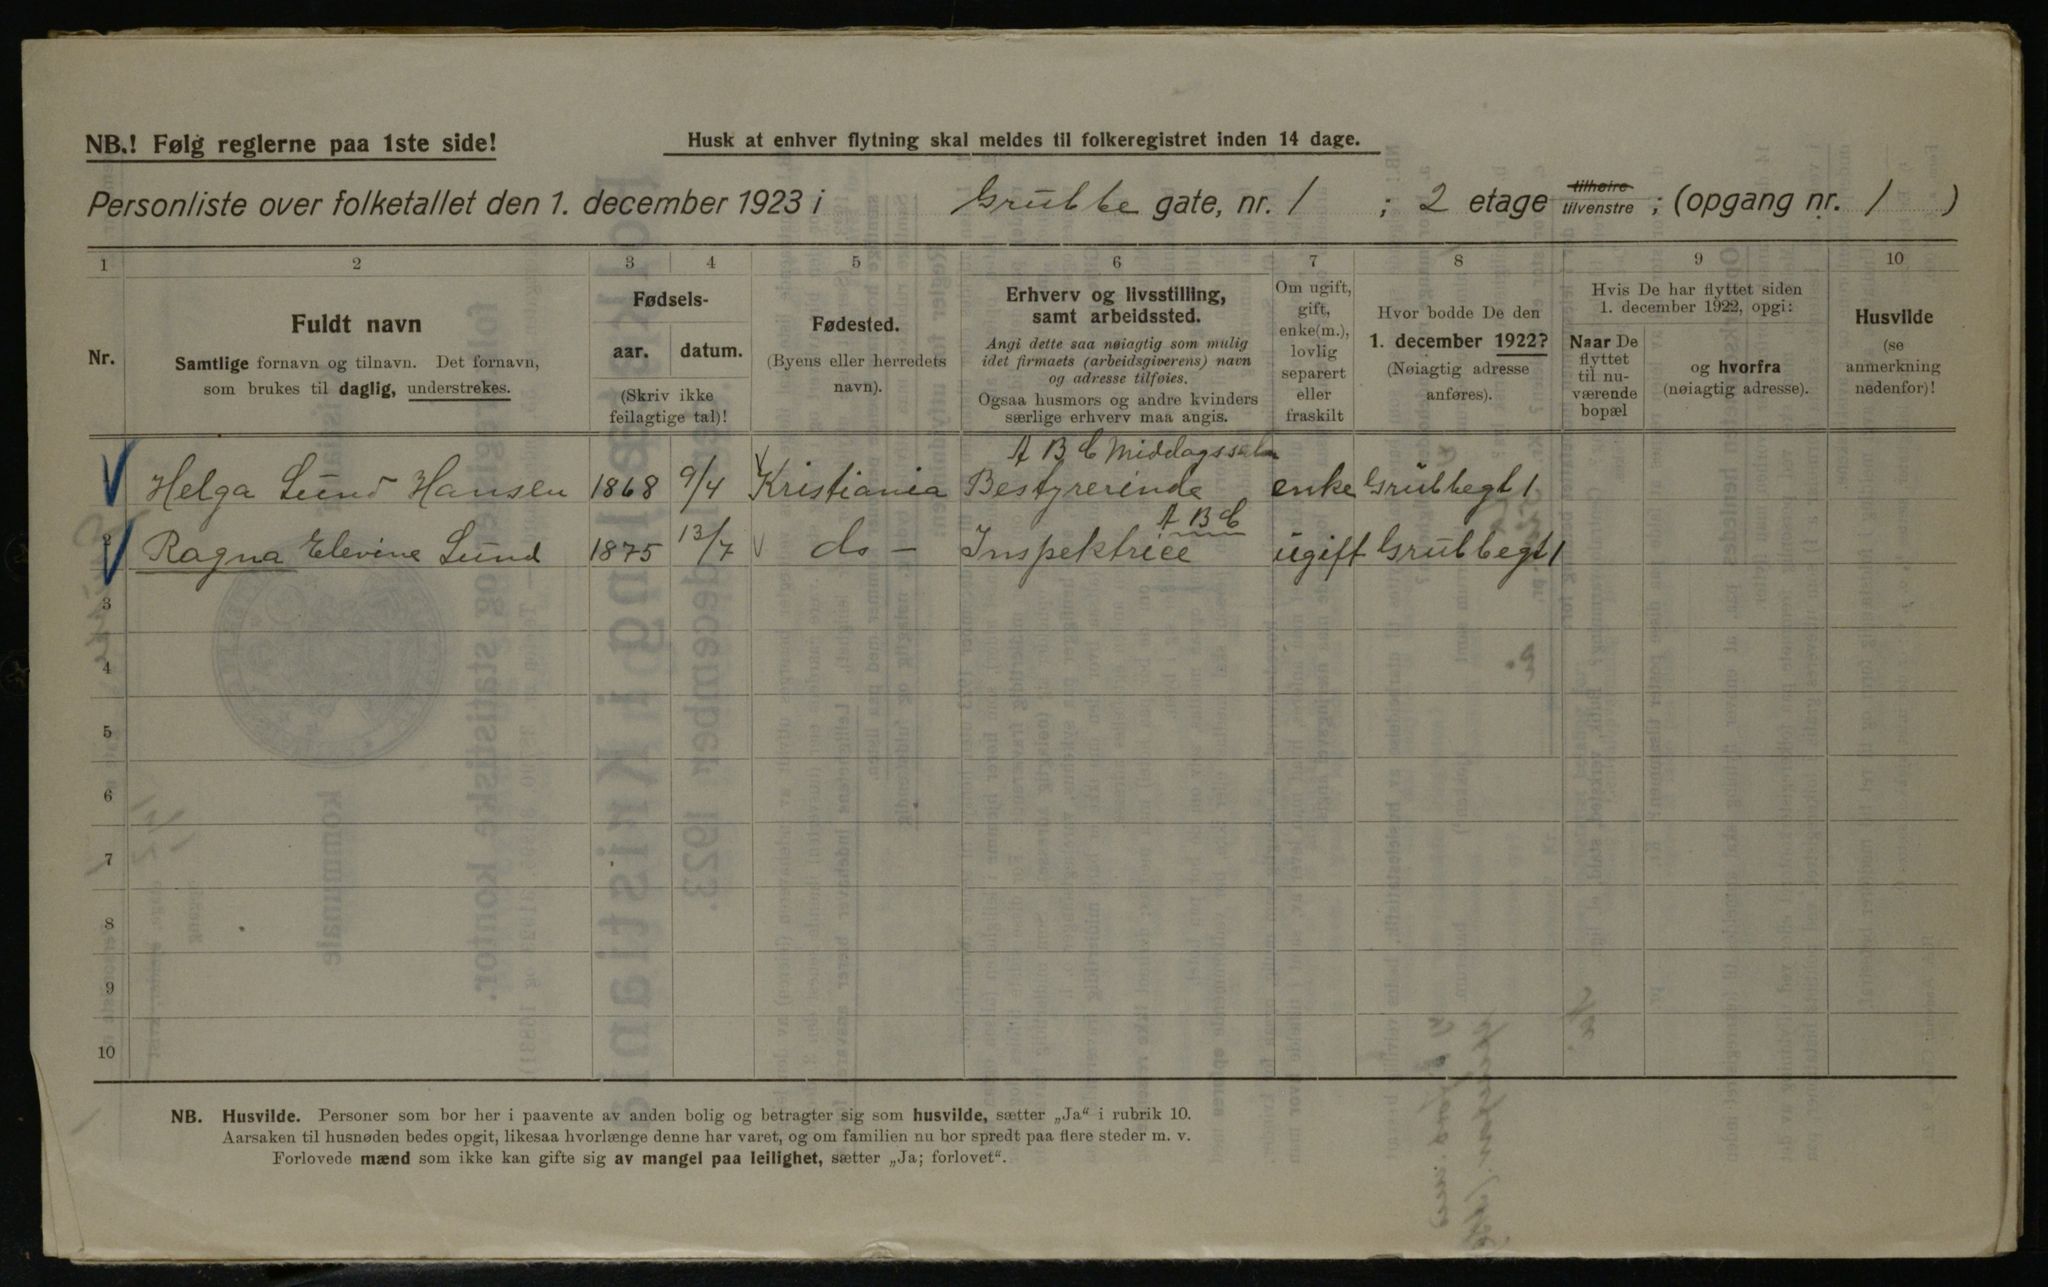 NB.! Følg reglerne paa 1ste side!
Husk at enhver flytning skal meldes til folkeregistret inden 14 dage.
Personliste over folketallet den 1. december 1923 i Grubbe gate, nr. 1 ; 2 etage tilhøire tilvenstre ; (opgang nr. 1 )
1 2 3 4 5 6 7 8 9 10
Nr.
Fuldt navn
Samtlige fornavn og tilnavn. Det fornavn,
som brukes til daglig, understrekes.
Fødsels-
aar. datum.
(Skriv ikke
feilagtige tal)!
Fødested.
(Byens eller herredets
navn).
Erhverv og livsstilling,
samt arbeidssted.
Angi dette saa nøiagtig som mulig
idet firmaets (arbeidsgiverens) navn
og adresse tilføies.
Ogsaa husmors og andre kvinders
særlige erhverv maa angis.
Om ugift,
gift,
enke(m.),
lovlig
separert
eller
fraskilt
Hvor bodde De den
1. december 1922?
(Nøiagtig adresse
anføres).
Hvis De har flyttet siden
1. december 1922, opgi:
Naar De
flyttet
til nu-
værende
bopæl
og hvorfra
(nøiagtig adresse).
Husvilde
(se
anmerkning
nedenfor)!
A B C Middagssalon
Helga Lund Hansen 1868 9/4 Kristiania Bestyrerinde enke Grubbegt 1
A B C
2 Ragna Elevine Lund 1875 13/7 do - Inspektrice ugift Grubbegt 1
3
4
5
6
7
8
9
10
NB. Husvilde. Personer som bor her i paavente av anden bolig og betragter sig som husvilde, sætter „Ja“ i rubrik 10.
Aarsaken til husnøden bedes opgit, likesaa hvorlænge denne har varet, og om familien nu bor spredt paa flere steder m. v.
Forlovede mænd som ikke kan gifte sig av mangel paa leilighet, sætter „Ja; forlovet“.